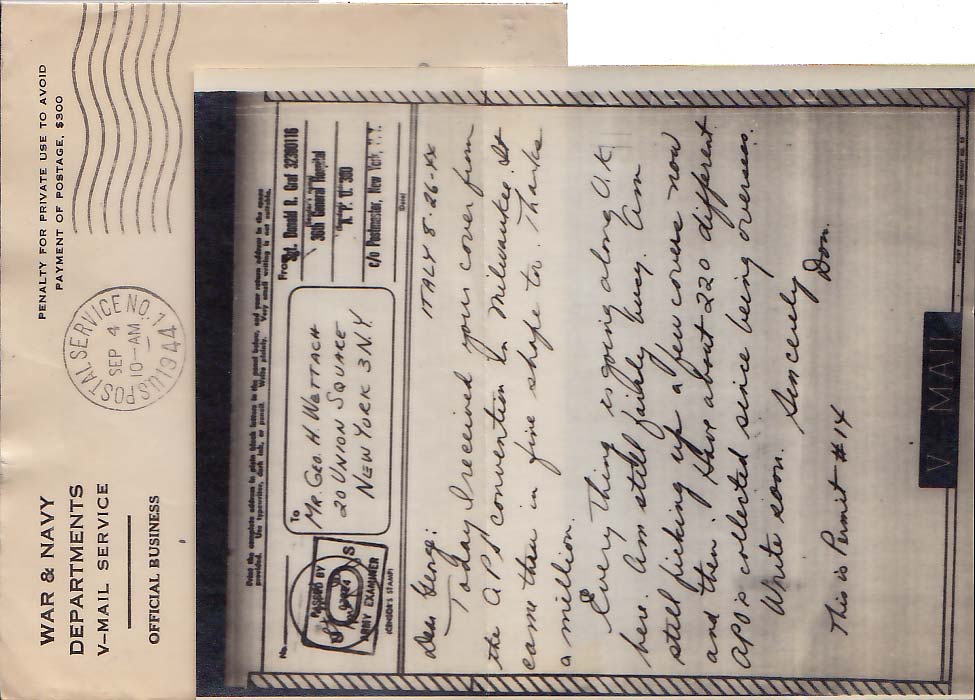 WAR & NAVY
DEPARTMENTS
V-MAIL SERVICE
OFFICIAL BUSINESS
U.S. POSTAL SERVICE NO. 1
SEP 4
10-AM
1944
PENALTY FOR PRIVATE USE TO AVOID
PAYMENT OF POSTAGE, $300
Print the complete address in plain block letters in the panel below, and your return address in the space
provided. Use typewriter, dark ink, or pencil. Write plainly. Very small writing is not suitable.
No.
PASSED BY
ARMY EXAMINER
(CENSOR'S STAMP)
To
MR. GEO. H. WETTACH
20 UNION SQUARE
NEW YORK 3 N.Y.
From
Sgt. Donald R. Graf 32380116
36th General Hospital
A. P. O. 300
c/o Postmaster, New York, N.Y.
(Date)
ITALY 8-26-44
Dear George:
Today I received your cover from
the APS convention in Milwaukee. It
came thru in fine shape to. Thanks
a million.
Every thing is going along O.K.
here. Am still fairly busy. Am
still picking up a few covers now
and then. Have about 220 different
APO's collected since being overseas.
Write soon.
Sincerely
Don.
This is Permit #14
V - MAIL
POST OFFICE DEPARTMENT PERMIT NO.